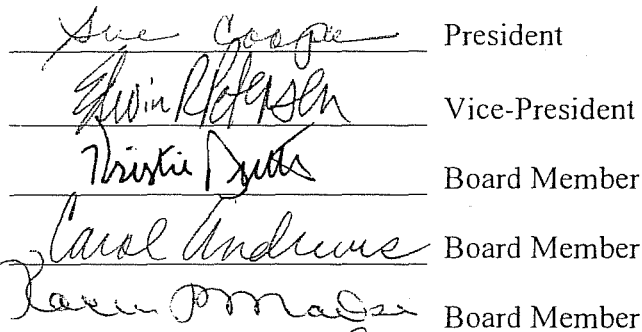 Sue Cooper President
Edwin R Petersen Vice-President
Kristie Board Member
Carol Andrews Board Member
Karen Board Member